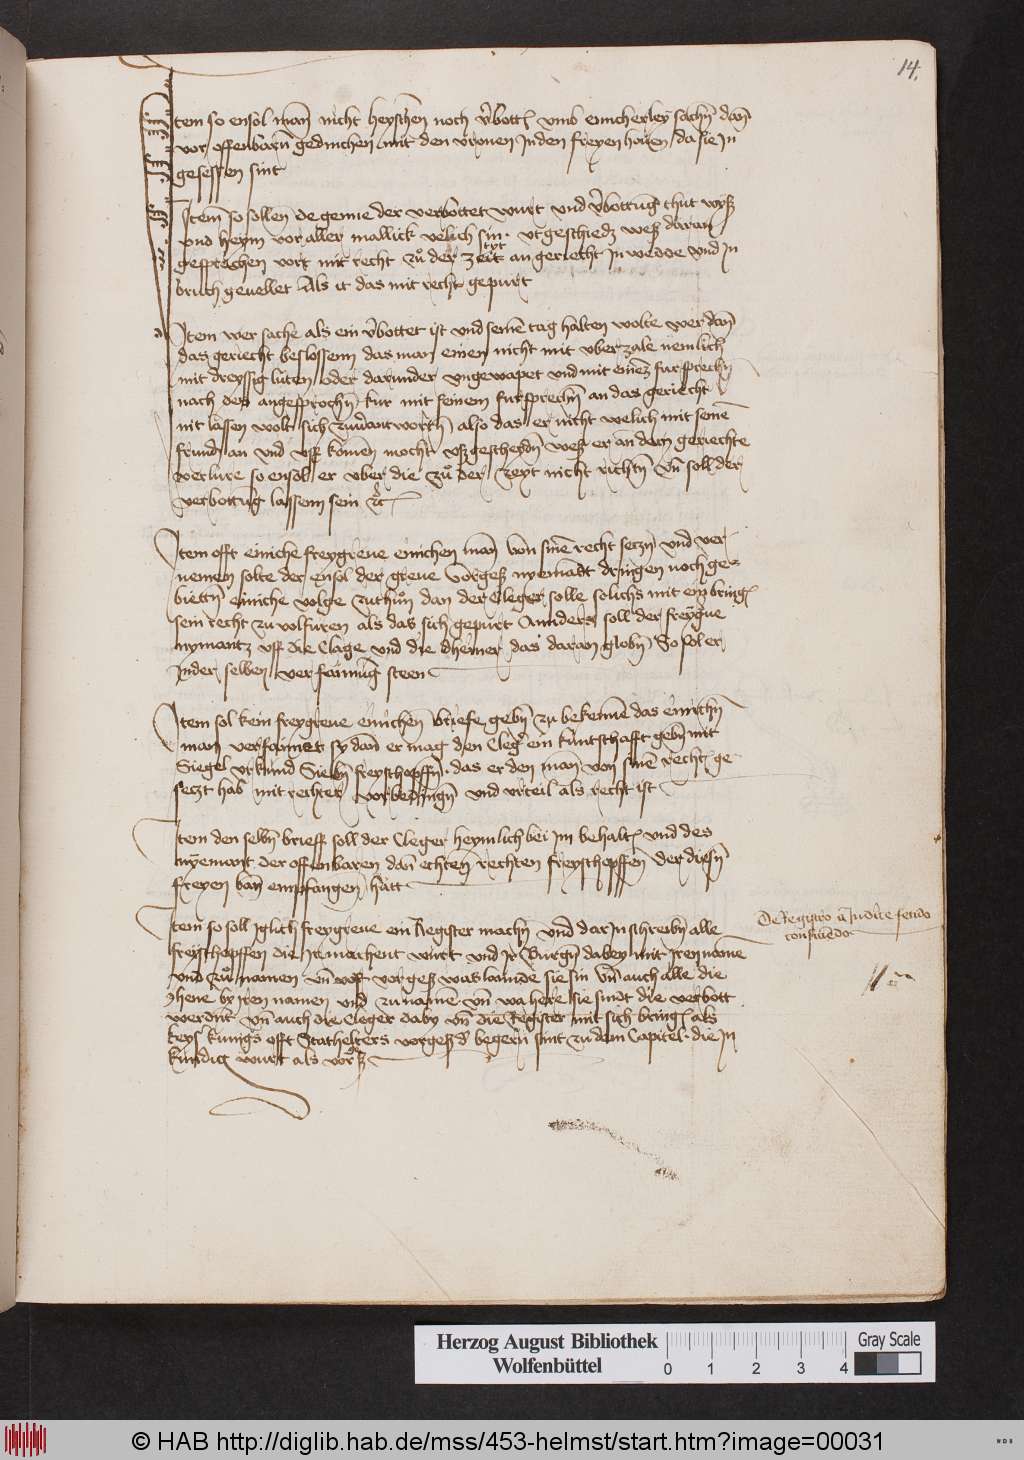 14.
Item so ensol man nicht heyschen noch v̄bott vmb einicherley sachn dan
vor offenbarn gedincken mit den vronen Inden freyen houen da sie In
gesessen sint
Item so sollen de genne der verbottet wurt vnd v̄bottung thut
vnd heym vor aller mallick velich sin. vtgescheid weß daran
gesprochen vort mit recht zů der zeit an gericht In wedde vnd In
bruch geuellet Als it das mit recht gepurt
Item wer sache als ein v̄bottet ist vnd seinē tag halten wolte wer dan
das geriecht beslossenn das man einen nicht mit vberzale nemlich
mit dreyssig luten oder darunder vngewapet vnd mit einez fursprechn
nach der angesprochn kur mit seinem fursprechn an das geriecht
nit lassen wolt sich zuv̄antwortn also das er nicht velich mit seinē
frundn an vnd vff komen mocht vßgescheydn weß er an dem geriechte
verlure so ensol er vber die zů der zeyt nicht richtn Vn̄ soll der
verbottug lassenn sein
Item offt einiche freygreue einichen man von sinē recht setzn vnd ver
nemen solte der ensol der greue vorgeß nyemādt dringen noch ge
bietn einiche volge zuthůn dan der Cleger solle solichs mit ein bringē
sein recht zu volfuren als das sich gepurt Annders soll der freygue
nymantz vff die Clage vnd die dheiner das daran globn So sol er
Inder selben verfarnüg steen
Item sol kein freygreue einichen brieffe gebn zu bekennē das einichn
man verfarimet sy dan er mag den Clegr ein kuntschafft gebn mit
Siegel vrkund Siebn freyschopffn. das er den man von sinē recht ge
setzt hab mit rechter vorbedingn vnd vrteil als recht ist
Item den selbn brieff soll der Cleger heymlich bei Im behaltē vnd des
nyemant der offenbaren dan echten rechten freyschopffen der diesn
freyen ban empfangen hatt
Item so soll Iglich freygreue ein Register machn vnd dar In schreibn alle
freyschopffen die Ir machent wurt vnd Ir Burgn dabey mit Iren name
vnd zů namen vn̄ vorgeß was lannde sie sin vn̄ auch alle die
Jhene by Iren namen vnd zu name vn̄ wa here sie sindt die verbott
werdnt vn̄ auch die Cleger daby vn̄ die Register mit sich bringē als
keys kunigs offt Stathelters vorgeß begern sint zu dem Capitel. die In
kundig wurt als vorß
De Registro a Judice feudo
conficiendo
Herzog August Bibliothek
Wolfenbüttel
0 1 2 3 4
Gray Scale
© HAB http://diglib.hab.de/mss/453-helmst/start.htm?image=00031